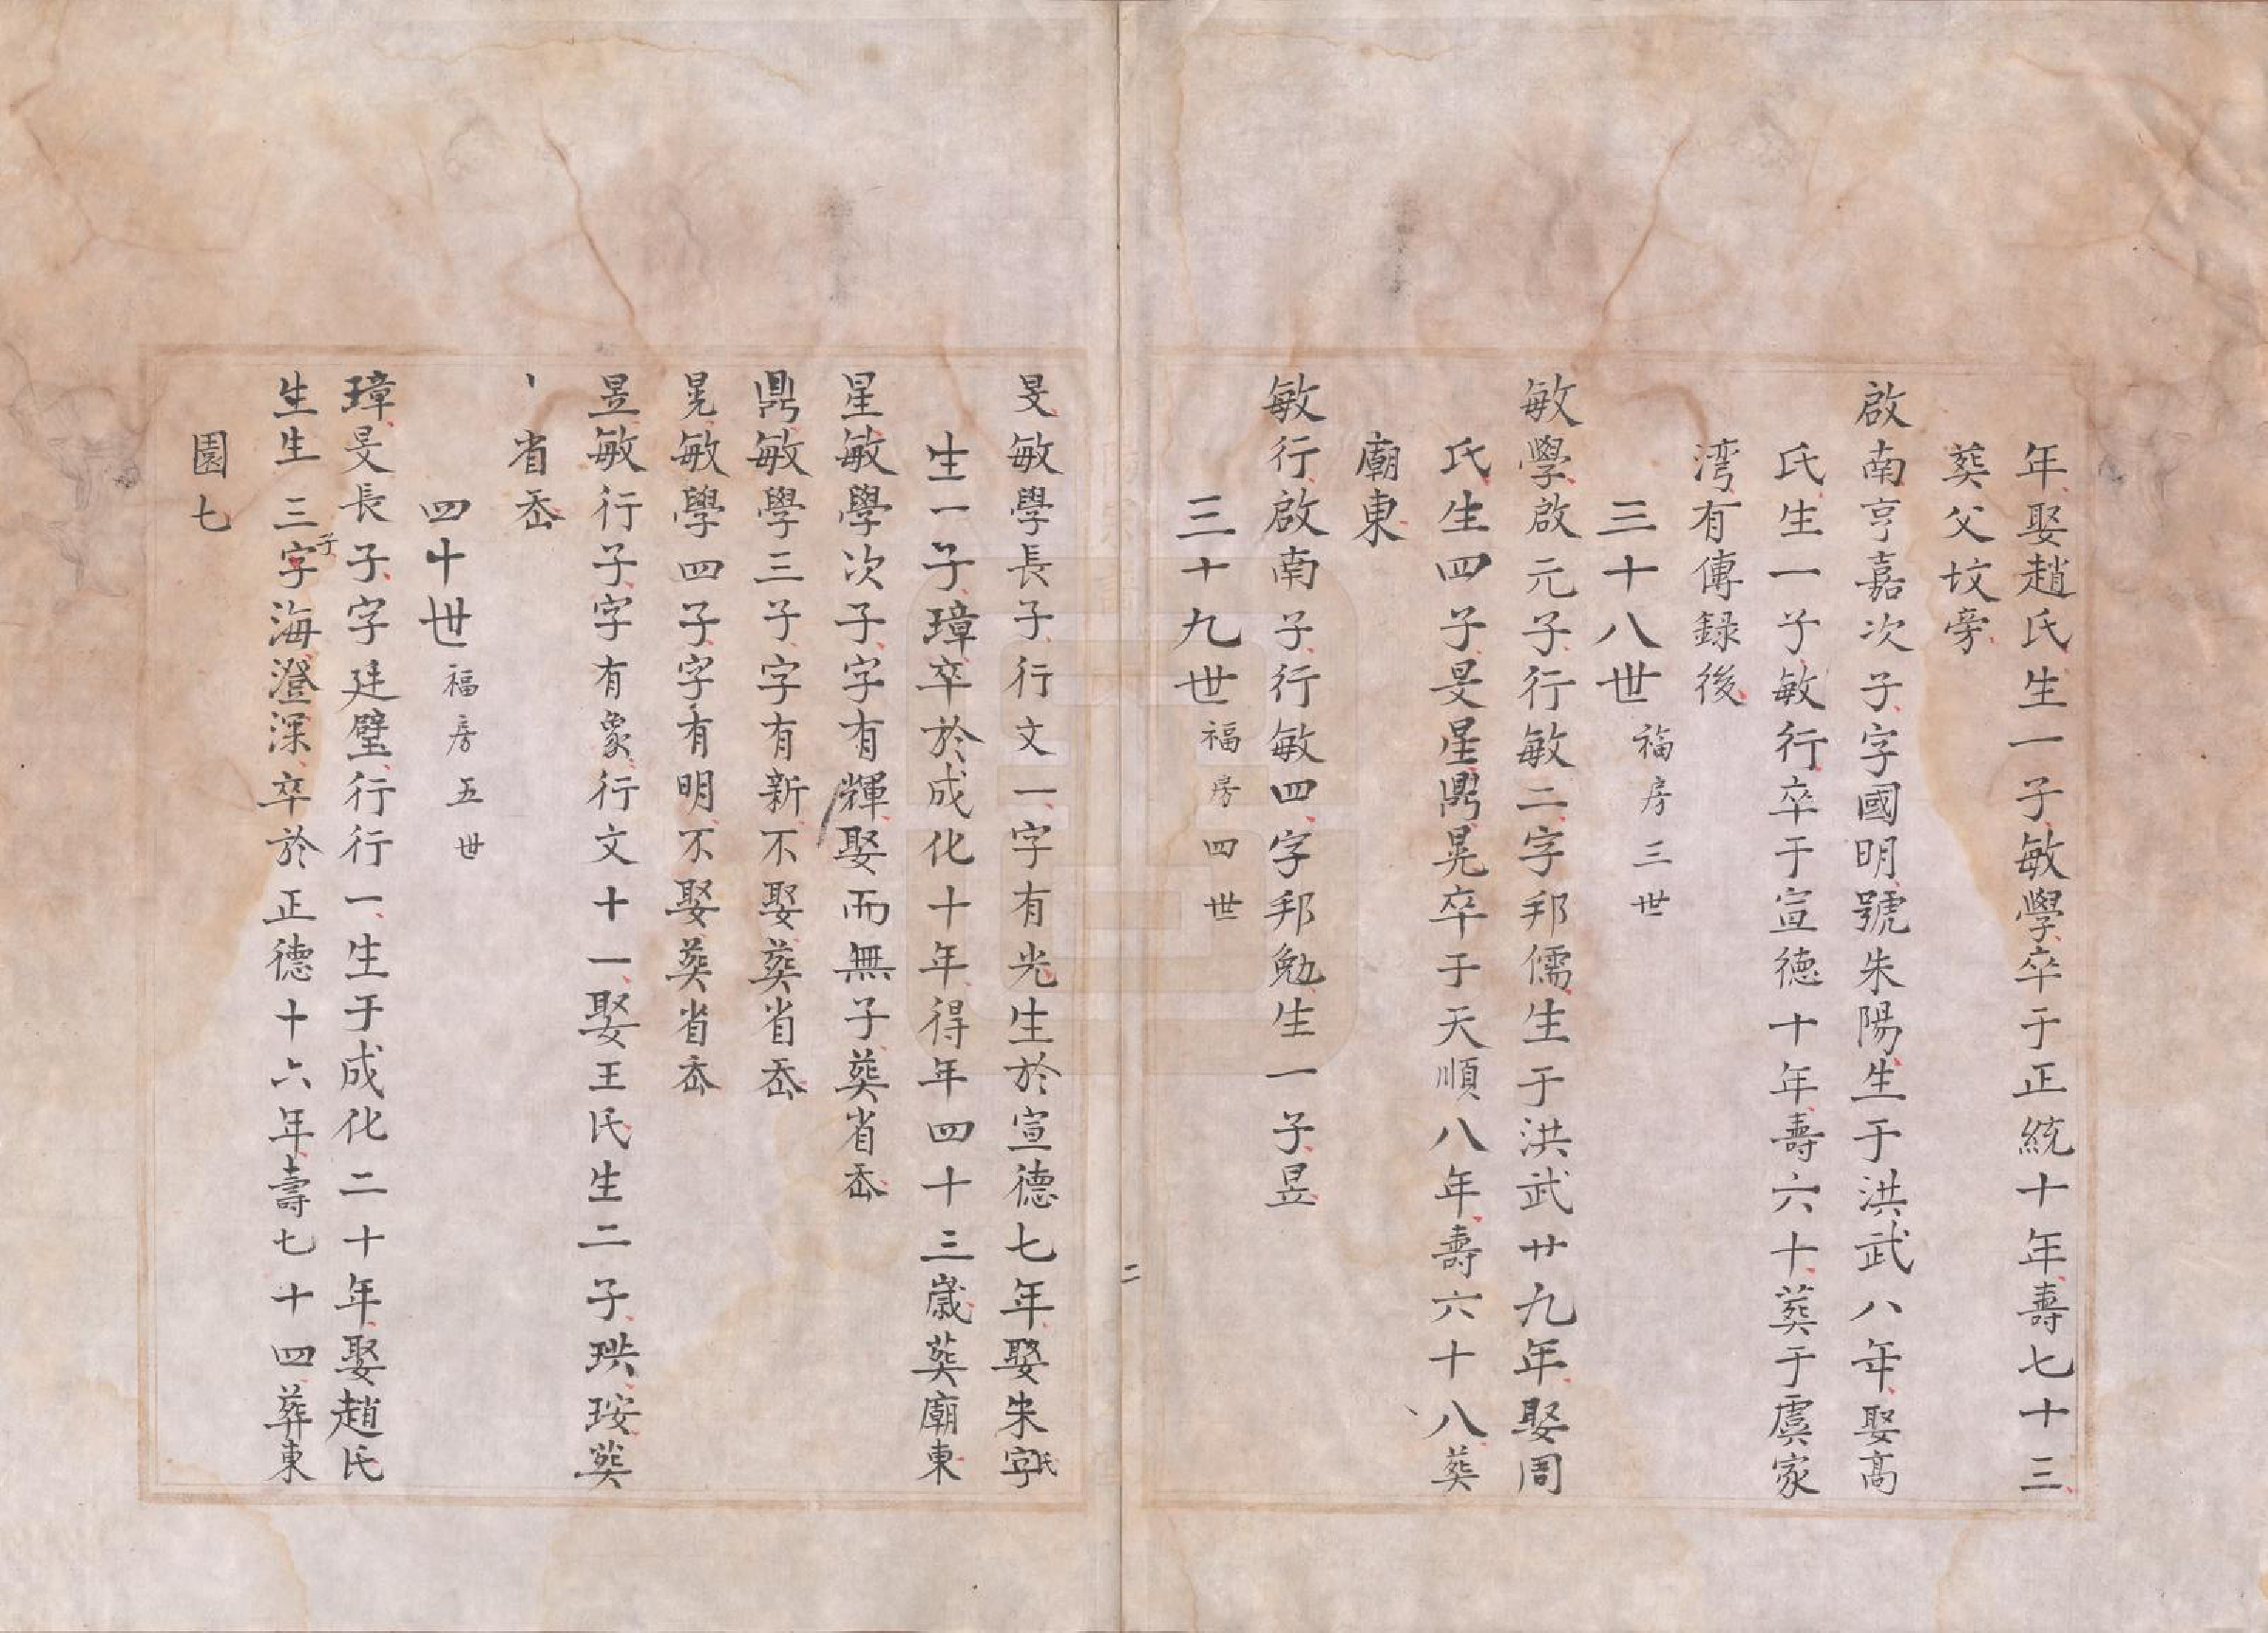 年娶趙氏生一子敏學卒于正統十年壽七十三
葬父坟旁
啟南亨嘉次子字國明號朱陽生于洪武八年娶高
氏生一子敏行卒于宣德十年壽六十葬于虞家
湾有傳録後
三十八世福房三世
敏學啟元子行敏二字邦儒生于洪武廿九年娶周
氏生四子旻星鼎晃卒于天順八年壽六十八葬
廟東
敏行啟南子行敏四字邦勉生一子昱
三十九世福房四世
二
旻敏學長子行文一字有光生於宣德七年娶朱字氏
生一子璋卒於成化十年得年四十三歲葬廟東
星敏學次子字有輝娶而無子葬省岙
鼎敏學三子字有新不娶葬省岙
晃敏學四子字有明不娶葬省岙
昱敏行子字有象行文十一娶王氏生二子珙珱葬
省岙
四十世福房五世
璋旻長子字廷璧行行一生于成化二十年娶趙氏
生生三子字海澄深卒於正德十六年壽七十四葬東
園七